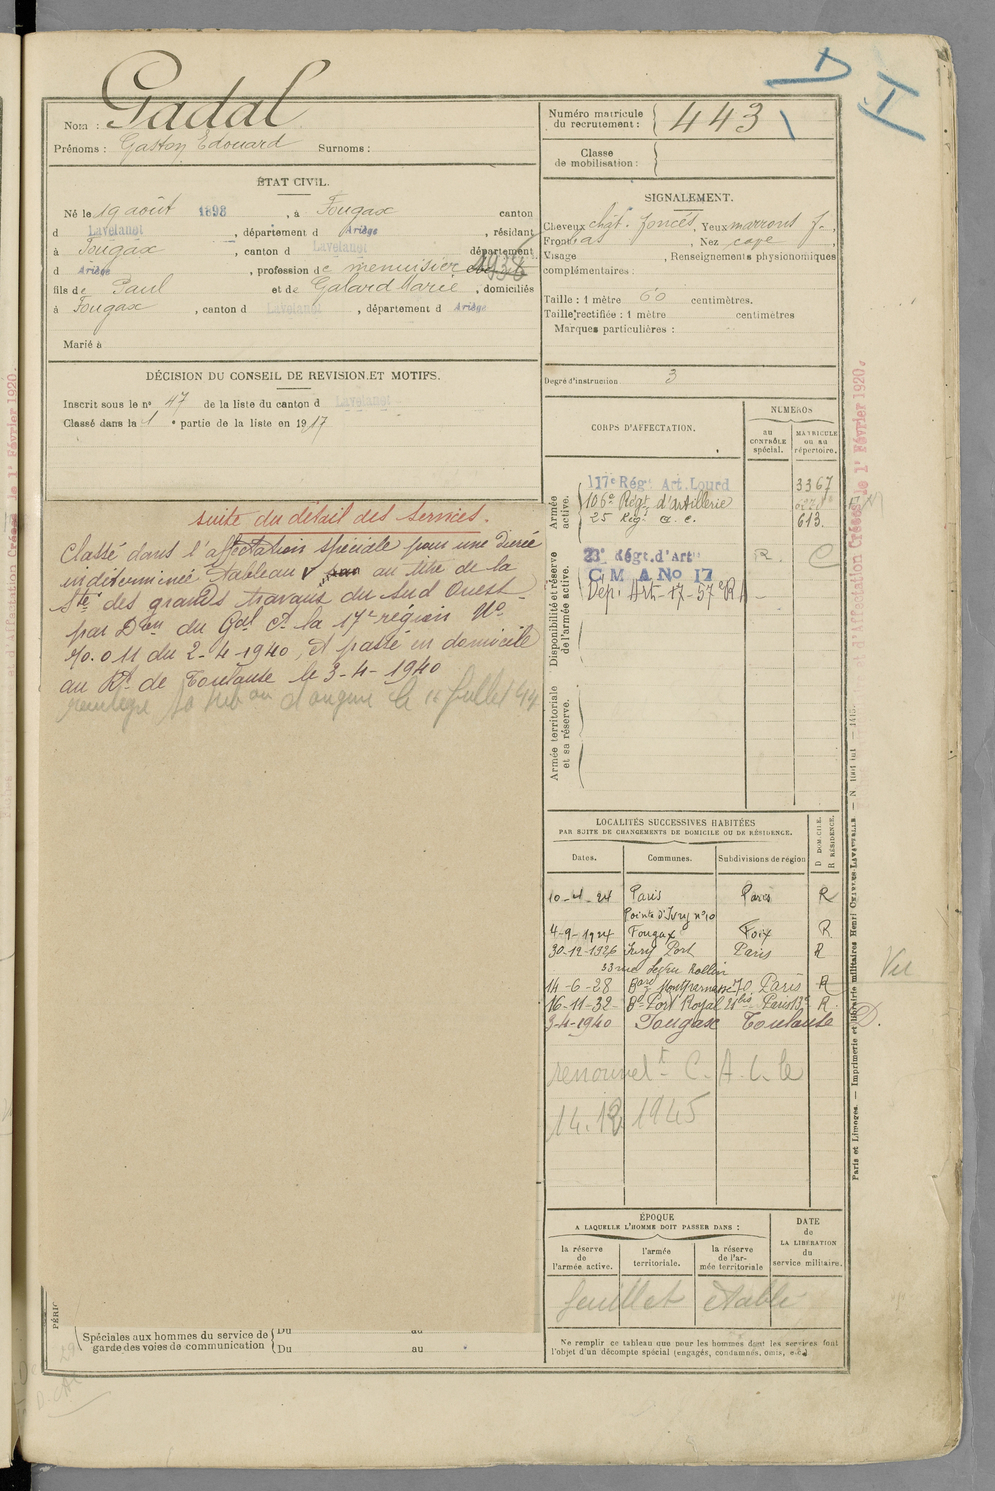 Nom : Gadal
Prénoms : Gaston Edouard Surnoms :
ÉTAT CIVIL.
Né le 19 août 1898, à Fougax canton
d Lavelanet, département d Ariège, résidant
à Fougax, canton d Lavelanet département
d Ariège, profession de menuisier
fils de Paul et de Galard Marie, domiciliés
à Fougax, canton d Lavelanet, département d Ariège
Marié à
DÉCISION DU CONSEIL DE REVISION ET MOTIFS.
Inscrit sous le n° 47 de la liste du canton d Lavelanet
Classé dans la 1e partie de la liste en 1917
suite du détail des services.
Classé dans l'affectation spéciale pour une durée
indéterminée Tableau au titre de la
Sté des grands travaux du Sud Ouest
par Don du Gal Ct la 17e région No
70.011 du 2-4-1940, et passé en domicile
au Rt de Toulouse le 3-4-1940
sa d'origine le 11 juillet 44
PÉRIO
Spéciales aux hommes du service de garde des voies de communication
Du au
Du au
Numéro matricule du recrutement : 443
Classe de mobilisation :
D
I
SIGNALEMENT.
Cheveux chât. foncés, Yeux marrons f.,
Front bas, Nez cave,
Visage , Renseignements physionomiques
complémentaires :
Taille : 1 mètre 60 centimètres.
Taille rectifiée : 1 mètre centimètres
Marques particulières :
Degré d'instruction 3
CORPS D'AFFECTATION.
NUMÉROS
au contrôle spécial.
matricule ou au répertoire.
Armée active.
117e Régt Art. Lourd 3367
106e Régt d'artillerie
25 Rég. a. c. 613.
Disponibilité et réserve de l'armée active.
23e Régt. d'Art R. C
C M A No 17
Dép. Art-17-57e R A
Armée territoriale et sa réserve.
LOCALITÉS SUCCESSIVES HABITÉES
PAR SUITE DE CHANGEMENTS DE DOMICILE OU DE RÉSIDENCE.
Dates. Communes. Subdivisions de région D DOMICILE. R RÉSIDENCE.
10-4-24 Paris Paris R
Pointe d'Ivry n° 10
4-9-1924 Fougax Foix R
30-12-1926 Ivry Port Paris R
33 rue Ledru Rollin
14-6-28 Bard Montparnasse 70 Paris R
16-11-32 Bd Port Royal 21bis Paris 13e R
3-4-1940 Fougax Toulouse D.
renouvelt C.A.L. le
14.12 1945
ÉPOQUE
A LAQUELLE L'HOMME DOIT PASSER DANS :
la réserve de l'armée active.
l'armée territoriale.
la réserve de l'armée territoriale
DATE de LA LIBÉRATION du service militaire.
feuillet établi
Ne remplir ce tableau que pour les hommes dont les services font
l'objet d'un décompte spécial (engagés, condamnés, omis, etc.)
Vu